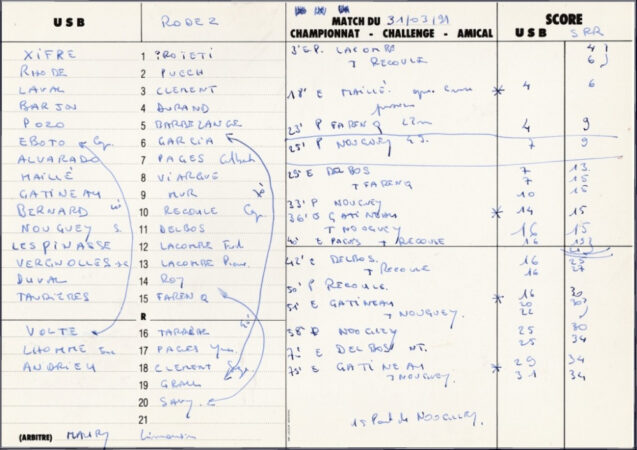 USB RODEZ
XIFRE 1
RHODE 2 PUECH
LAVAL 3 CLEMENT
BARJON 4 DURAND
POZO 5 BARBEZANGE
EBOTO Cap. 6 GARCIA
ALVARADO 7 PAGES
MAILLÉ 8 VIARGUE
GATINEAU 9 MUR
BERNARD 10 RECOULE Cap.
NOUGUEY S. 11 DELBOS
LESPINASSE 12 LACOMBE
VERGNOLLES 13 LACOMBE
DUVAL 14 ROY
TAURIERES 15 FARENQ
R
VOLTE 16
LHOMME 17 PAGES
ANDRIEU 18 CLEMENT
19 GRALL
20 SAVY
21
(ARBITRE) MAURY Limousin
MATCH DU 31/03/91
CHAMPIONNAT - CHALLENGE - AMICAL
SCORE
USB SRR
3' EP. LACOMBE 4
T RECOULE 6
18' E MAILLÉ 4 6
23' P FARENQ 22m 4 9
25' P NOUGUEY 7 9
29' E DELBOS 7 13
T FARENQ 7 15
33' P NOUGUEY 10 15
36' E GATINEAU 14 15
T NOUGUEY 16 15
40' E PAGES T RECOULE 16
42' E DELBOS 16 25
T RECOULE 16 27
50' P RECOULE 16 30
E GATINEAU 20 30
T NOUGUEY 22
58' D NOUGUEY 25 30
E DELBOS NT. 25 34
75' E GATINEAU 29 34
T NOUGUEY 31 34
15 Pont de NOUGUEY